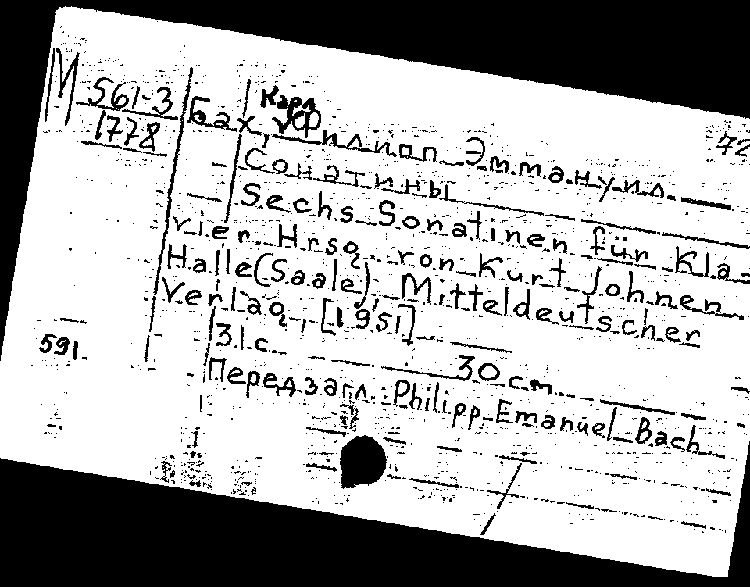 М 561-3
1778
72
Карл
Бах, Филипп Эммануил.
Сонатины
Sechs Sonatinen für Kla-
vier. Hrsg. von Kurt Johnen.
Halle(Saale), Mitteldeutscher
Verlag, [1951]
31 с. 30 см.
Перед загл.: Philipp Emanuel Bach
591